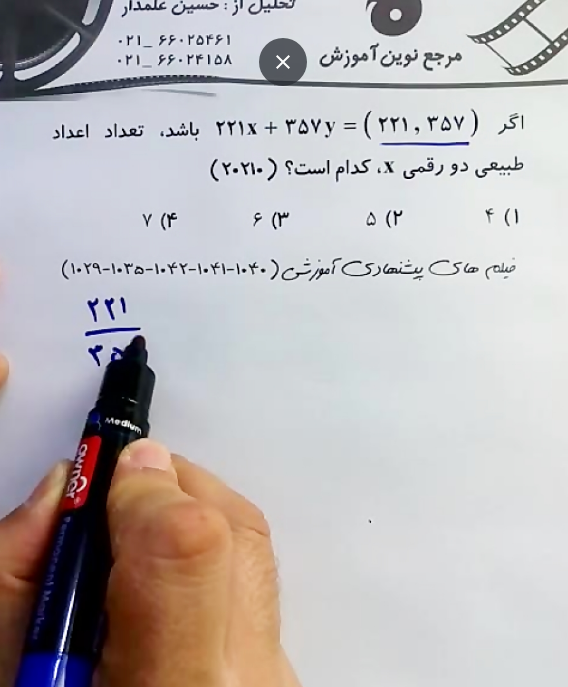 تحلیل از : حسین علمدار
۰۲۱_ ۶۶۰۲۵۴۶۱
۰۲۱_ ۶۶۰۲۴۱۵۸
مرجع نوین آموزش
اگر ۲۲۱x + ۳۵۷y = (۲۲۱ , ۳۵۷) باشد، تعداد اعداد
طبیعی دو رقمی x، کدام است؟ (۲۰۲۱۰)
۱) ۴ ۲) ۵ ۳) ۶ ۴) ۷
فیلم های پیشنهادی آموزشی (۱۰۴۰-۱۰۴۱-۱۰۴۲-۱۰۳۵-۱۰۲۹)
۲۲۱
۳۵
Medium
owner
Permanent Marker